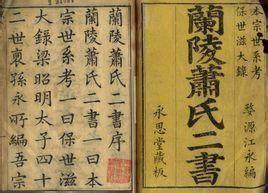 宗世系考
保世滋大錄
婺源江永編
蘭陵蕭氏二書
永思堂藏板
蘭陵蕭氏二書序
蘭陵蕭氏二書一曰本
宗世系考一曰保世滋
大錄梁昭明太子四十
二世裔孫永所編吾宗